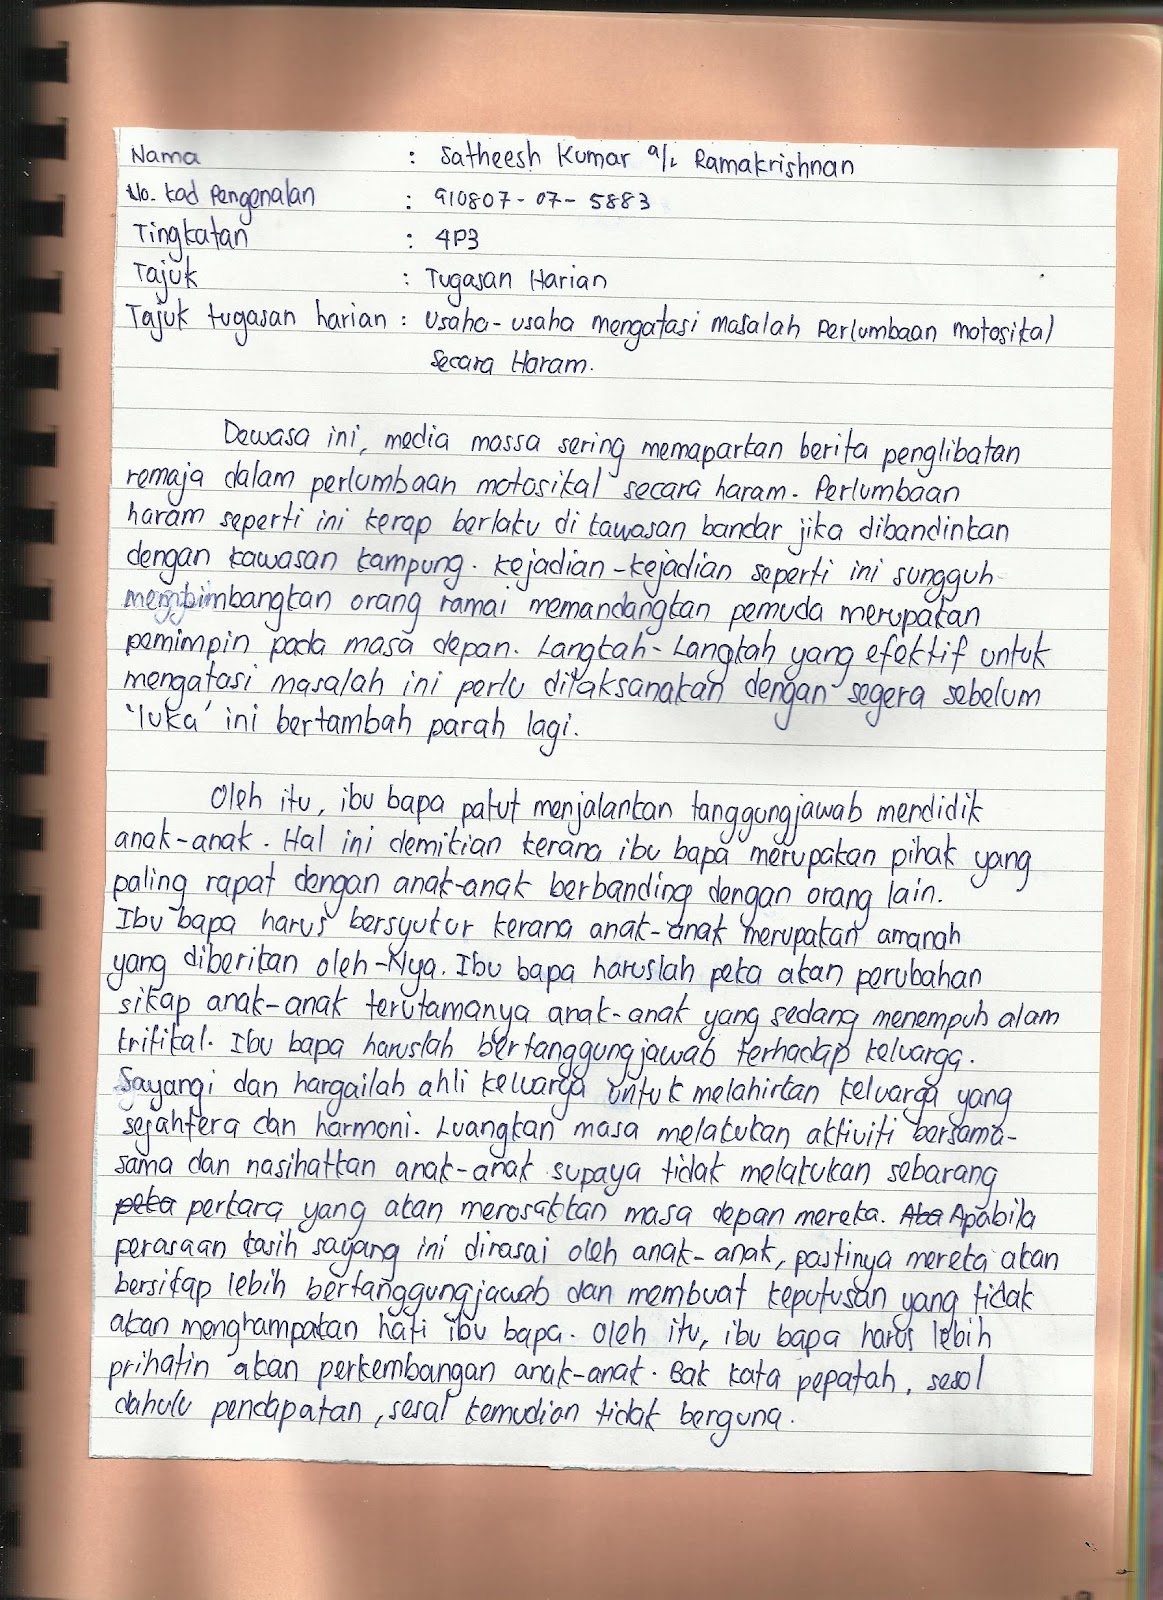 Nama : Satheesh Kumar a/L Ramakrishnan
No. Kad Pengenalan : 910807-07-5883
Tingkatan : 4P3
Tajuk : Tugasan Harian
Tajuk tugasan harian : Usaha-usaha mengatasi masalah Perlumbaan motosikal
secara Haram.
Dewasa ini, media massa sering memaparkan berita penglibatan
remaja dalam perlumbaan motosikal secara haram. Perlumbaan
haram seperti ini kerap berlaku di kawasan bandar jika dibandinkan
dengan kawasan kampung. Kejadian-kejadian seperti ini sungguh
membimbangkan orang ramai memandangkan pemuda merupakan
pemimpin pada masa depan. Langkah-Langkah yang efektif untuk
mengatasi masalah ini perlu dilaksanakan dengan segera sebelum
'luka' ini bertambah parah lagi.
Oleh itu, ibu bapa patut menjalankan tanggungjawab mendidik
anak-anak. Hal ini demikian kerana ibu bapa merupakan pihak yang
paling rapat dengan anak-anak berbanding dengan orang lain.
Ibu bapa harus bersyukur kerana anak-anak merupakan amanah
yang diberikan oleh-Nya. Ibu bapa haruslah peka akan perubahan
sikap anak-anak terutamanya anak-anak yang sedang menempuh alam
kritikal. Ibu bapa haruslah bertanggungjawab terhadap keluarga.
Sayangi dan hargailah ahli keluarga untuk melahirkan keluarga yang
sejahtera dan harmoni. Luangkan masa melakukan aktiviti bersama-
sama dan nasihatkan anak-anak supaya tidak melakukan sebarang
peka perkara yang akan merosakkan masa depan mereka. Aba Apabila
perasaan kasih sayang ini dirasai oleh anak-anak, pastinya mereka akan
bersikap lebih bertanggungjawab dan membuat keputusan yang tidak
akan menghampakan hati ibu bapa. Oleh itu, ibu bapa harus lebih
prihatin akan perkembangan anak-anak. Bak kata pepatah, sesal
dahulu pendapatan, sesal kemudian tidak berguna.